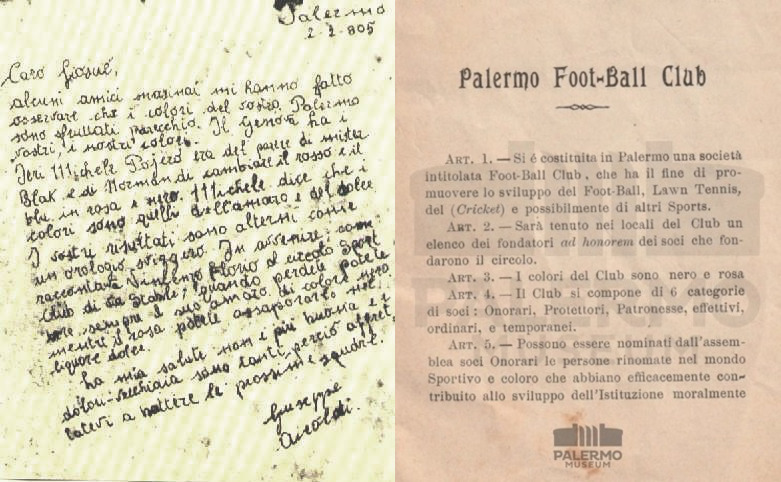 Palermo
2-2-905
Caro Giosuè,
alcuni amici marinai mi hanno fatto
osservare che i colori del vostro Palermo
sono sfruttati parecchio. Il Genova ha i
vostri, i nostri colori.
Ieri Michele Pojero era del parere di mister
Blak e di Normandi cambiare il rosso e il
blu in rosa e nero. Michele dice che i
colori sono quelli dell'amaro e del dolce
I vostri risultati sono alterni come
un orologio svizzero. In avvenire, come
raccontava Vincenzo Florio al circolo Sport
Club di via Stabile, quando perdete potete
bere sempre il suo amaro di colore nero
mentre il rosa potete assaporarlo nel
liquore dolce.
ha mia salute non è più buona e i
dolori-vecchiaia sono tanti, perciò affret
tatevi a battere le prossime squadre.
Giuseppe
Airoldi.
Palermo Foot-Ball Club
ART. 1. — Si é costituita in Palermo una società
intitolata Foot-Ball Club, che ha il fine di pro-
muovere lo sviluppo del Foot-Ball, Lawn Tennis,
del (Cricket) e possibilmente di altri Sports.
ART. 2. — Sarà tenuto nei locali del Club un
elenco dei fondatori ad honorem dei soci che fon-
darono il circolo.
ART. 3. — I colori del Club sono nero e rosa
ART. 4. — Il Club si compone di 6 categorie
di soci: Onorari, Protettori, Patronesse, effettivi,
ordinari, e temporanei.
ART. 5. — Possono essere nominati dall'assem-
blea soci Onorari le persone rinomate nel mondo
Sportivo e coloro che abbiano efficacemente con-
tribuito allo sviluppo dell'Istituzione moralmente
PALERMO
PALERMO
MUSEUM